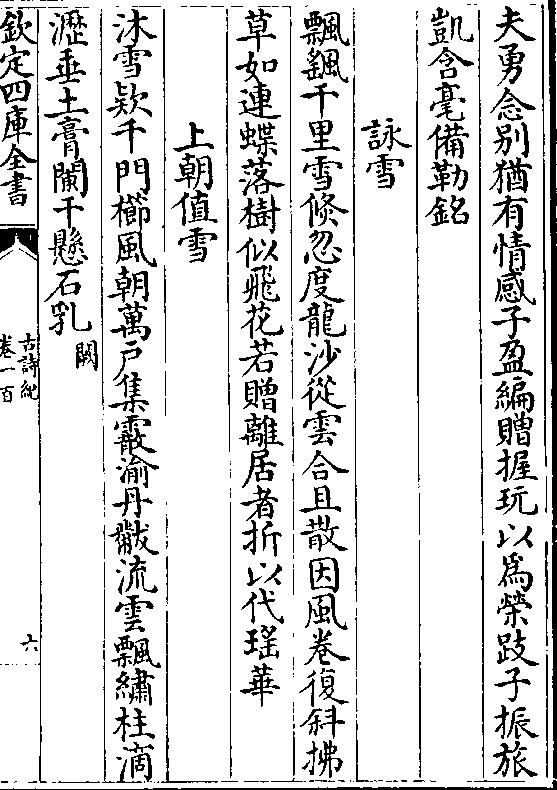 夫勇念别猶有情感子盈編贈握玩以為榮跂子振旅
凱含毫備勒銘
詠雪
飄颻千里雪倐忽度龍沙從雲合且散因風卷復斜拂
草如連蝶落樹似飛花若贈離居者折以代瑤華
上朝值雪
沐雪款千門櫛風朝萬戸集霰渝丹黻流雲飄繡柱滴
瀝垂土膏闌干懸石乳闕
欽定四庫全書
古詩紀
卷一百
六